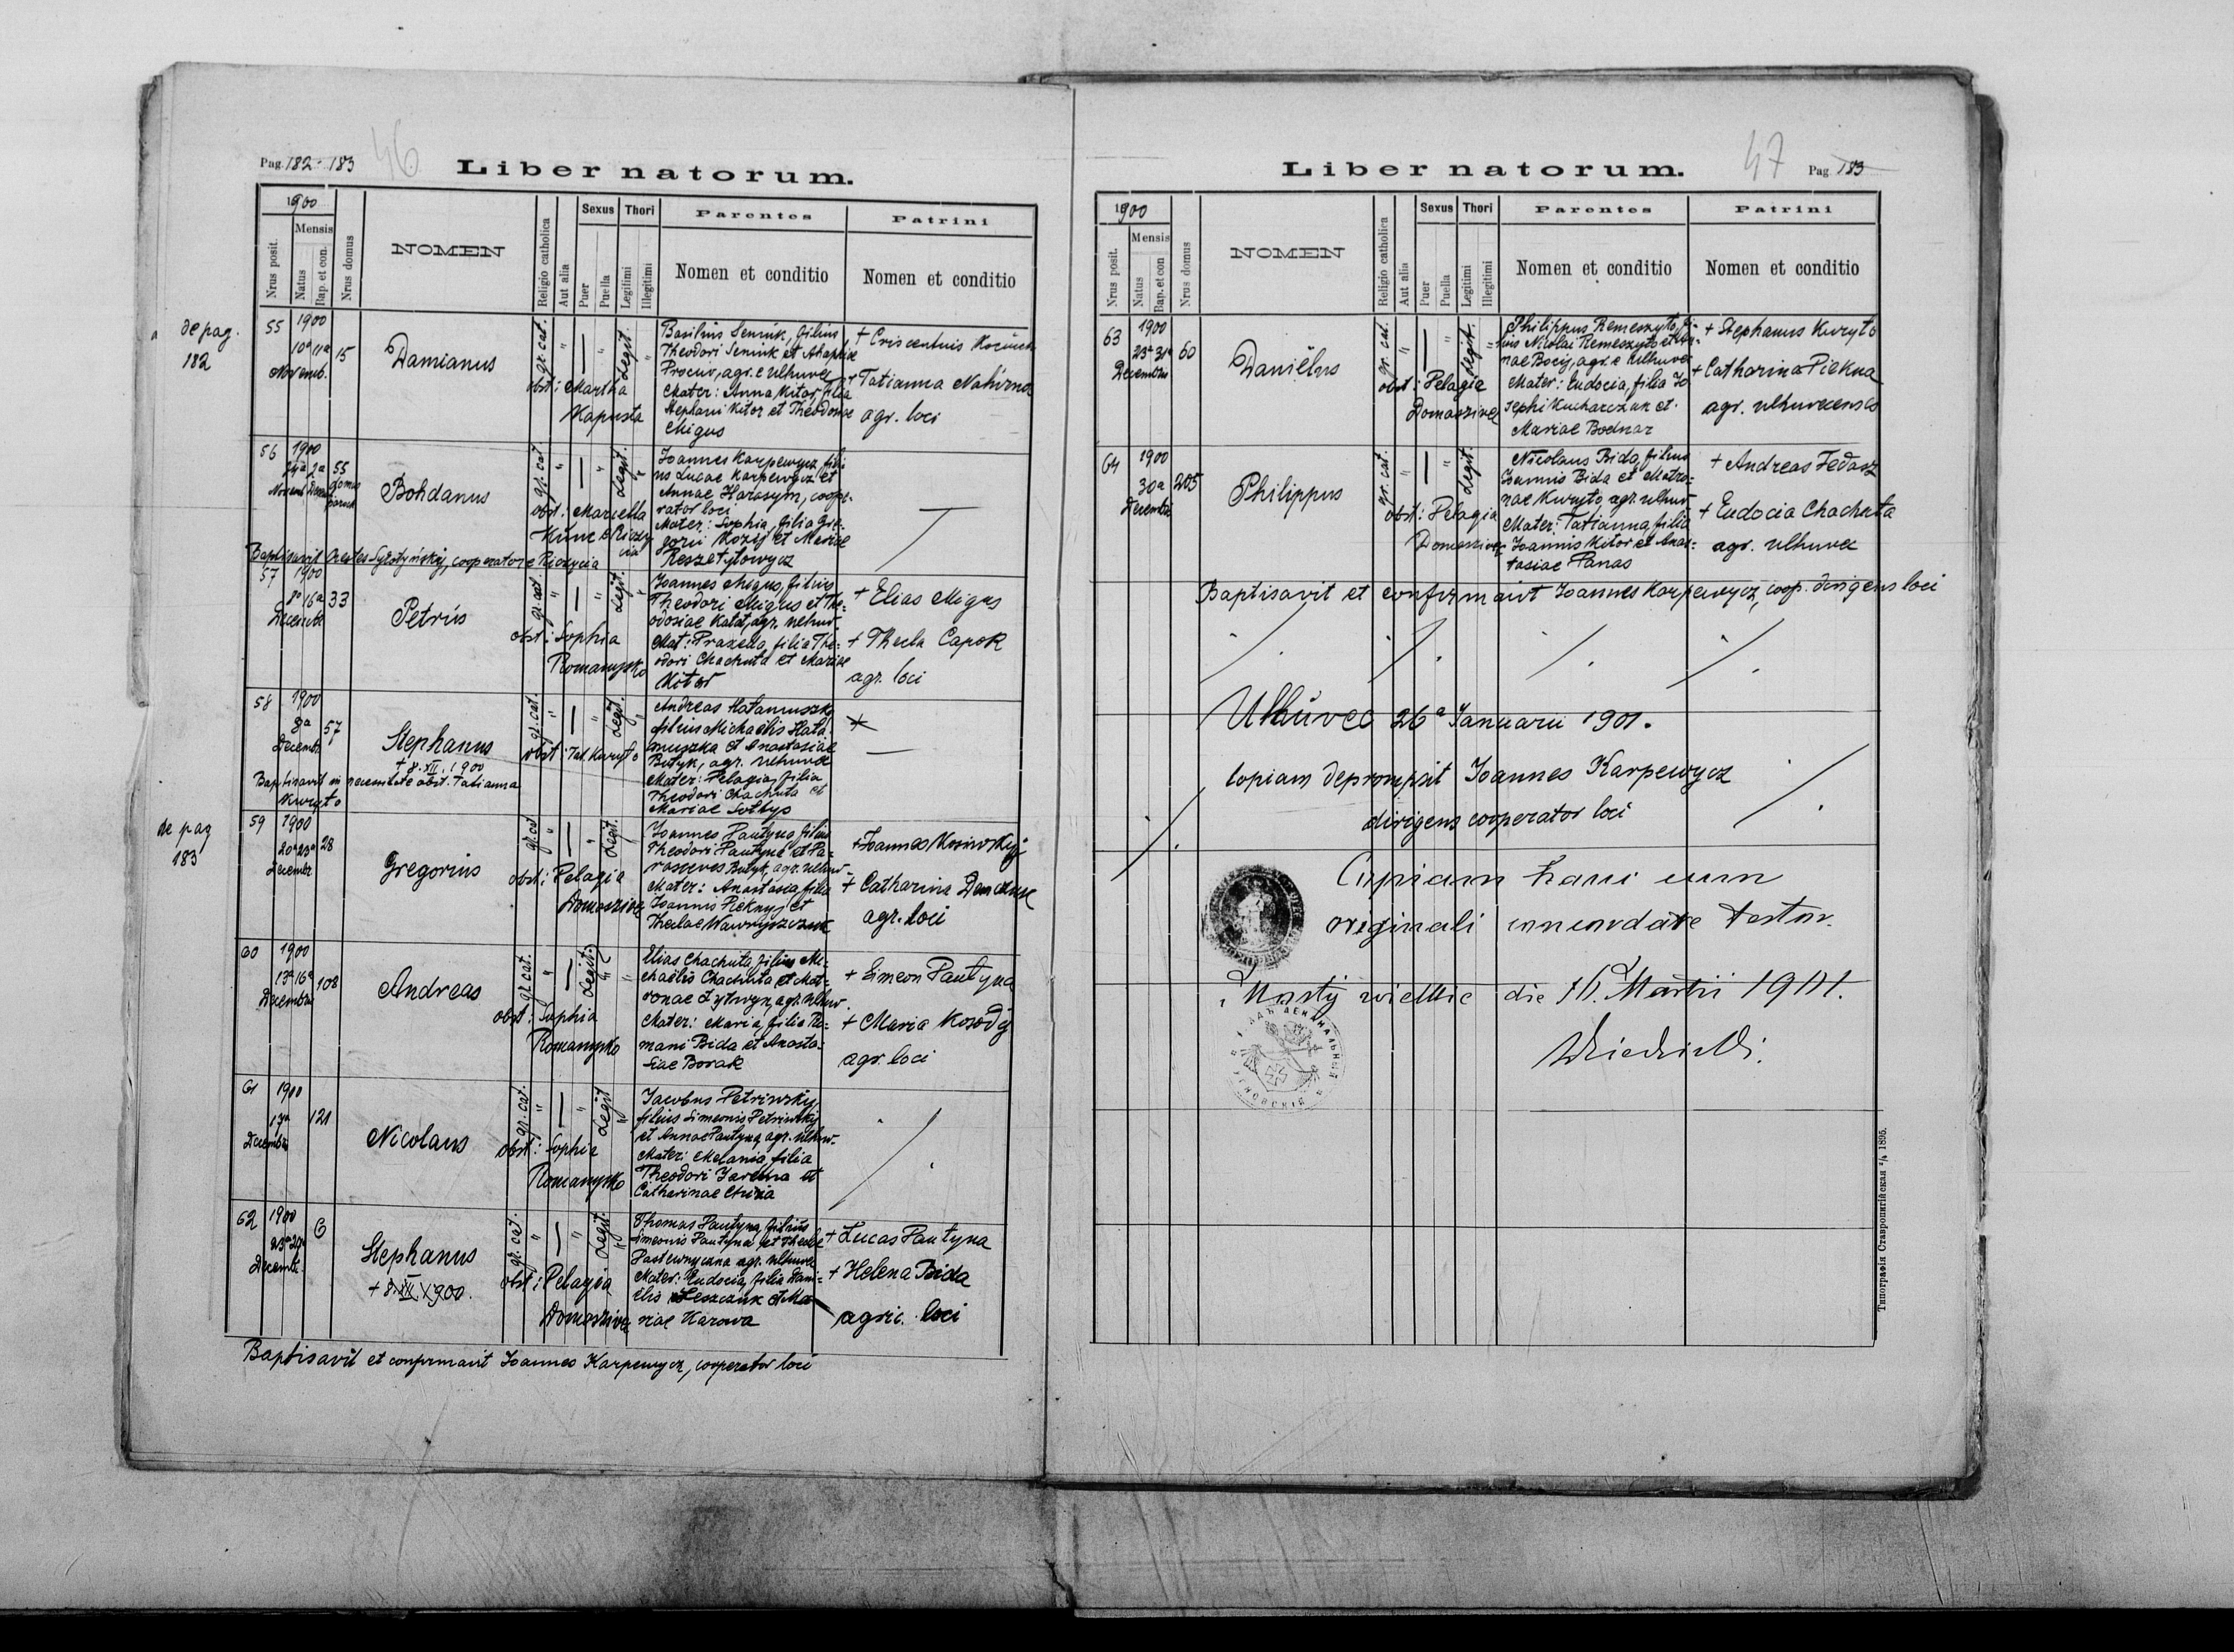 Pag. 182-183
46
Liber natorum.
1900
Nrus posit.
Mensis
Natus
Bap. et con.
Nrus domus
NOMEN
Religio catholica
Aut alia
Sexus
Puer
Puella
Thori
Legitimi
Illegitimi
Parentes
Nomen et conditio
Patrini
Nomen et conditio
de pag.
182
55
1900
10a 11a
Novemb.
15
Damianus
gr. cat.
Legit.
obst: Martha
Kapusta
Basilius Seniuk, filius
Theodori Seniuk et Ahaphiae
Prociw, agr. e Ulhuvec
Mater: Anna Kitor, filia
Stephani Kitor et Theodosiae
Migus
+ Tatianna Nahirna
agr. loci
56
1900
24a 2a
55
domus
Bohdanus
gr. cat.
Legit.
obst: Marcella
Joannes Karpewycz, fili
us Lucae Karpewycz et
Annae Harasym, coope-
rator loci
Mater: Sophia, filia Gre-
gorii Kozij et Mariae
Reszetylowycz
57
1900
8a 16a
Decembr
33
Petrus
gr. cat.
Legit.
obst: Sophia
Romanysko
Joannes Migus, filius
Theodori Migus et The-
odosiae Kalat, agr. Ulhuv.
Mat: Praxeda, filia The-
odori Chachuta et Mariae
Kitor
+ Elias Migus
+ Thecla Capok
agr. loci
58
1900
8a
Decembr
57
Stephanus
+ 8. XII. 1900
gr. cat.
Legit.
obst: Tat. Kuryto
Baptisavit in necessitate obst. Tatianna
Kuryto
Andreas Hatamuszka
filius Michaëlis Hata
muszka et Anastasiae
Butyk, agr. Ulhuvec
Mater: Pelagia, filia
Theodori Chachuta et
Mariae Soltys
de pag
183
59
1900
20a 23a
Decembr
28
Gregorius
gr. cat
Legit.
obst: Pelagia
Domoszivec
Joannes Pautyna filius
Theodori Pautyna et Pa-
rasceves Butyk, agr. Ulhuv-
Mater: Anastasia, filia
Joannis Pieknyj et
Theclae Wawryszczuk
+ Joannes Kosiwskyj
+ Catharina Demczuk
agr. loci
60
1900
13a 16a
Decembr
108
Andreas
gr. cat.
Legit.
obst: Sophia
Romanysko
Elias Chachuta, filius Mi-
chaëlis Chachuta et Mat-
ronae Lytwyn, agr. Ulhuv.
Mater: Maria, filia Ro-
mani Bida et Anasta-
siae Borak
+ Simeon Pautyna
+ Maria Kosodij
agr. loci
61
1900
17a
Decembr
121
Nicolaus
gr. cat.
Legit
obst: Sophia
Romanysko
Jacobus Petriwskij
filius Simeonis Petriwskij
et Annae Pautyna, agr. Ulhuv-
Mater: Melania, filia
Theodori Jarema et
Catharinae
62
1900
Decembr.
6
Stephanus
+ 8. XII 1900.
gr. cat.
Legit.
obst: Pelagia
Domoszivec
Thomas Pautyna, filius
Simeonis Pautyna et Theclae
agr. Ulhuvec
Mater: Eudocia, filia Dani-
ëlis Leszczuk et Ma-
riae Harowa
+ Lucas Pautyna
+ Helena Bida
agric. loci
Baptisavit et confirmavit Joannes Karpewycz, cooperator loci
Liber natorum.
47
Pag. 183
1900
Nrus posit.
Mensis
Natus
Bap. et con
Nrus domus
NOMEN
Religio catholica
Aut alia
Sexus
Puer
Puella
Thori
Legitimi
Illegitimi
Parentes
Nomen et conditio
Patrini
Nomen et conditio
63
1900
23a 31a
Decembris
60
Daniëlus
gr. cat.
Legit.
obst: Pelagia
Domoszivec
Philippus Remeszyto, fi-
lius Nicolai Remeszyto et An-
nae Bocij, agr. e Ulhuvec
Mater: Eudocia, filia Jo
sephi Kucharczuk et
Mariae Bodnar
+ Stephanus Kuryto
+ Catharina Piekna
agr. ulhuvecensis
64
1900
30a
Decembris
205
Philippus
gr. cat.
Legit.
obst: Pelagia
Domoszivec
Nicolaus Bida, filius
Joannis Bida et Matro-
nae Kuryto, agr. ulhuv-
Mater: Tatianna, filia
Joannis Kitor et Anas-
tasiae Panas
+ Andreas Fedasz
+ Eudocia Chachuta
agr. Ulhuvec
Baptisavit et confirmavit Joannes Karpewycz, coop. dirigens loci
Ulhuvec 26a Januarii 1901.
Copiam deprompsit Joannes Karpewycz
dirigens cooperator loci
Copiam hanc cum
originali concordare testor.
Mosty wielkie die 16. Martii 1901.
Типографія Ставропигійская 1895.